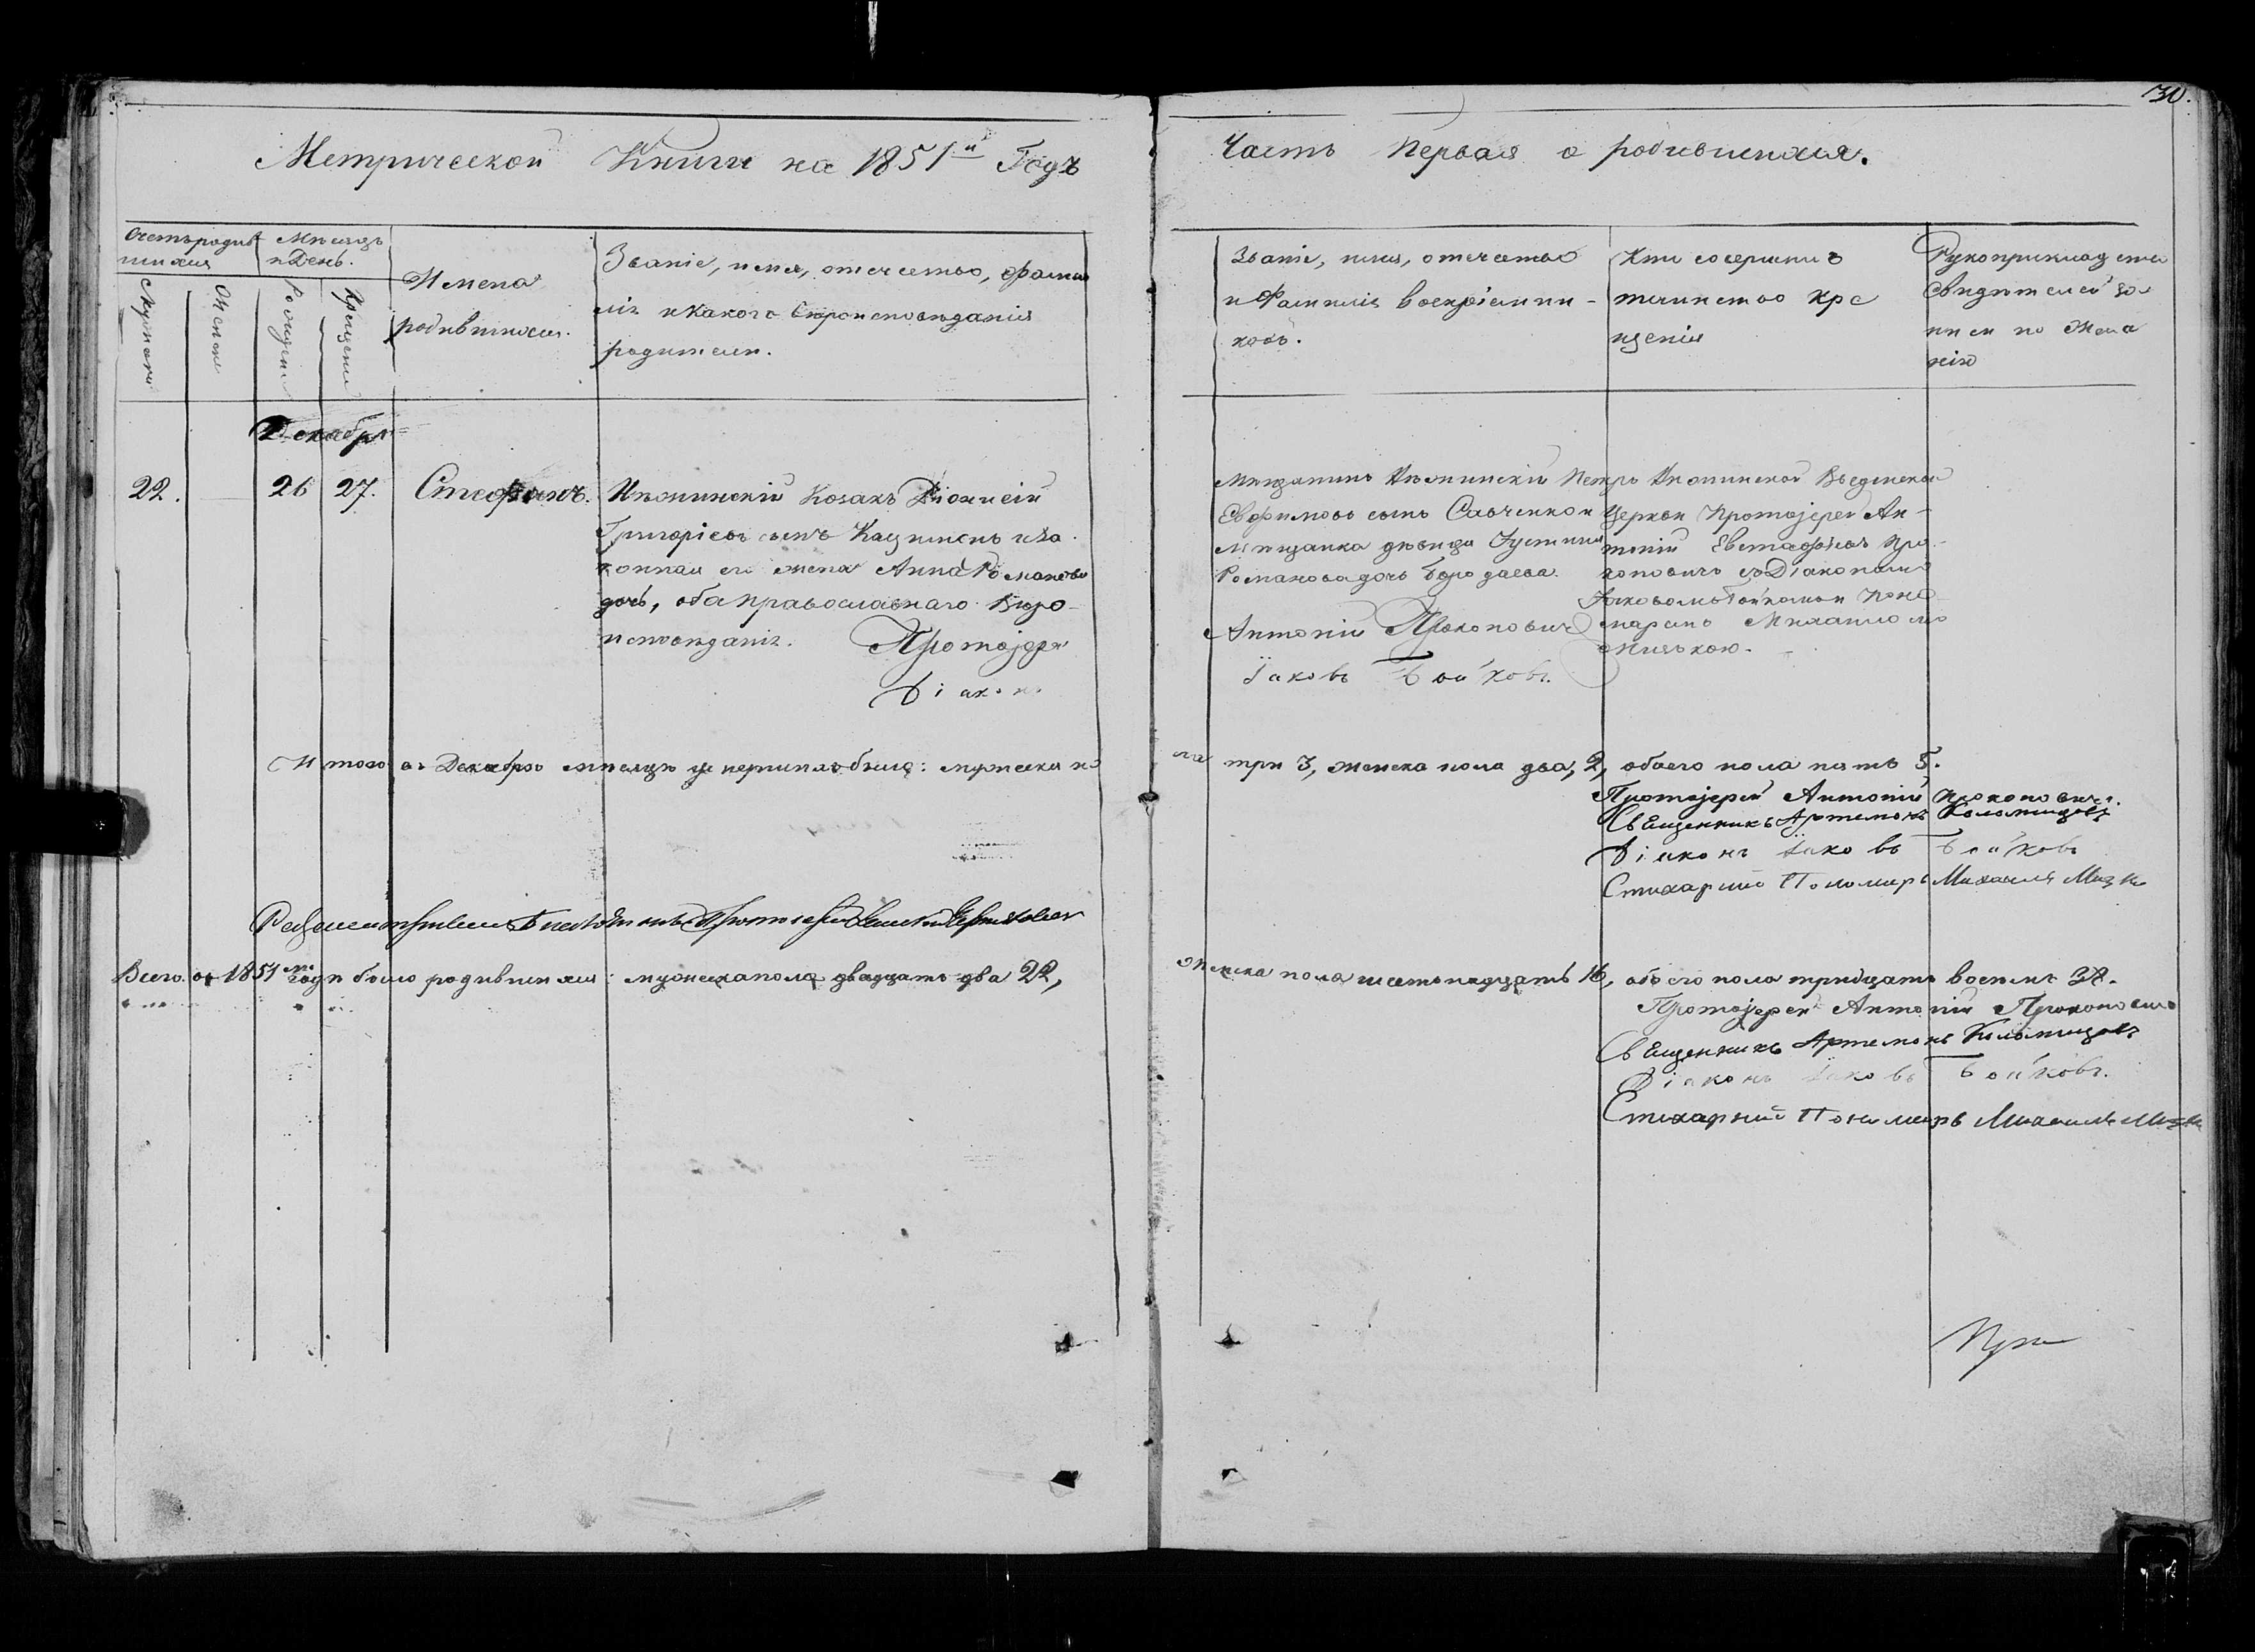 30.
Метрической Книги на 1851й Годъ
Часть Первая о родившихся.
Счетъ родив
шихся
Мѣсяцъ
и День.
Мужеска
Женска
Рожденія
Крещенія
Имена
родившихся.
Званіе, имя, отечество, фами
лія и какого вѣроисповѣданія
родители.
Званіе, имя, отечество
и Фамилія воспріемни-
ковъ.
Кто совершилъ
таинство кре
щенія
Рукоприкладство
свидѣтелей за
писи по жела
нію
Декабрь
22.
26
27.
Стефанъ.
Козакъ Діонисій
Григорьевъ сынъ и за
конная его жена Анна Романова
дочь, оба православнаго вѣро-
исповѣданія. Протоіерей
Діаконъ
Мѣщанинъ Петръ
Евфимовъ сынъ Савченко и
Мѣщанка дѣвица Іустина
Романова дочь Бородаева.
Антоній Прокоповичъ
Іаковъ Бойковъ.
Введенской
Церкви Протоіерей Ан-
тоній Евстафіевъ Про-
коповичъ съ Діакономъ
Іаковомъ Бойковымъ и поно
маремъ Михаиломъ
Итого въ Декабрѣ мѣсяцѣ было: мужеска по
ла три 3, женска пола два, 2, обоего пола пять 5.
Протоіерей Антоній Прокоповичъ.
Священникъ Артемонъ Коломійцовъ
Діаконъ Іаковъ Бойковъ
Стихарний Пономарь Михаилъ
Протоіерей
Всего въ 1851мъ годѣ было родившихся: мужеска пола двадцать два 22,
женска пола шестнадцать 16, обоего пола тридцать восемь 38.
Протоіерей Антоній Прокоповичъ
Священникъ Артемонъ Коломійцовъ
Діаконъ Іаковъ Бойковъ.
Стихарний Пономарь Михаилъ